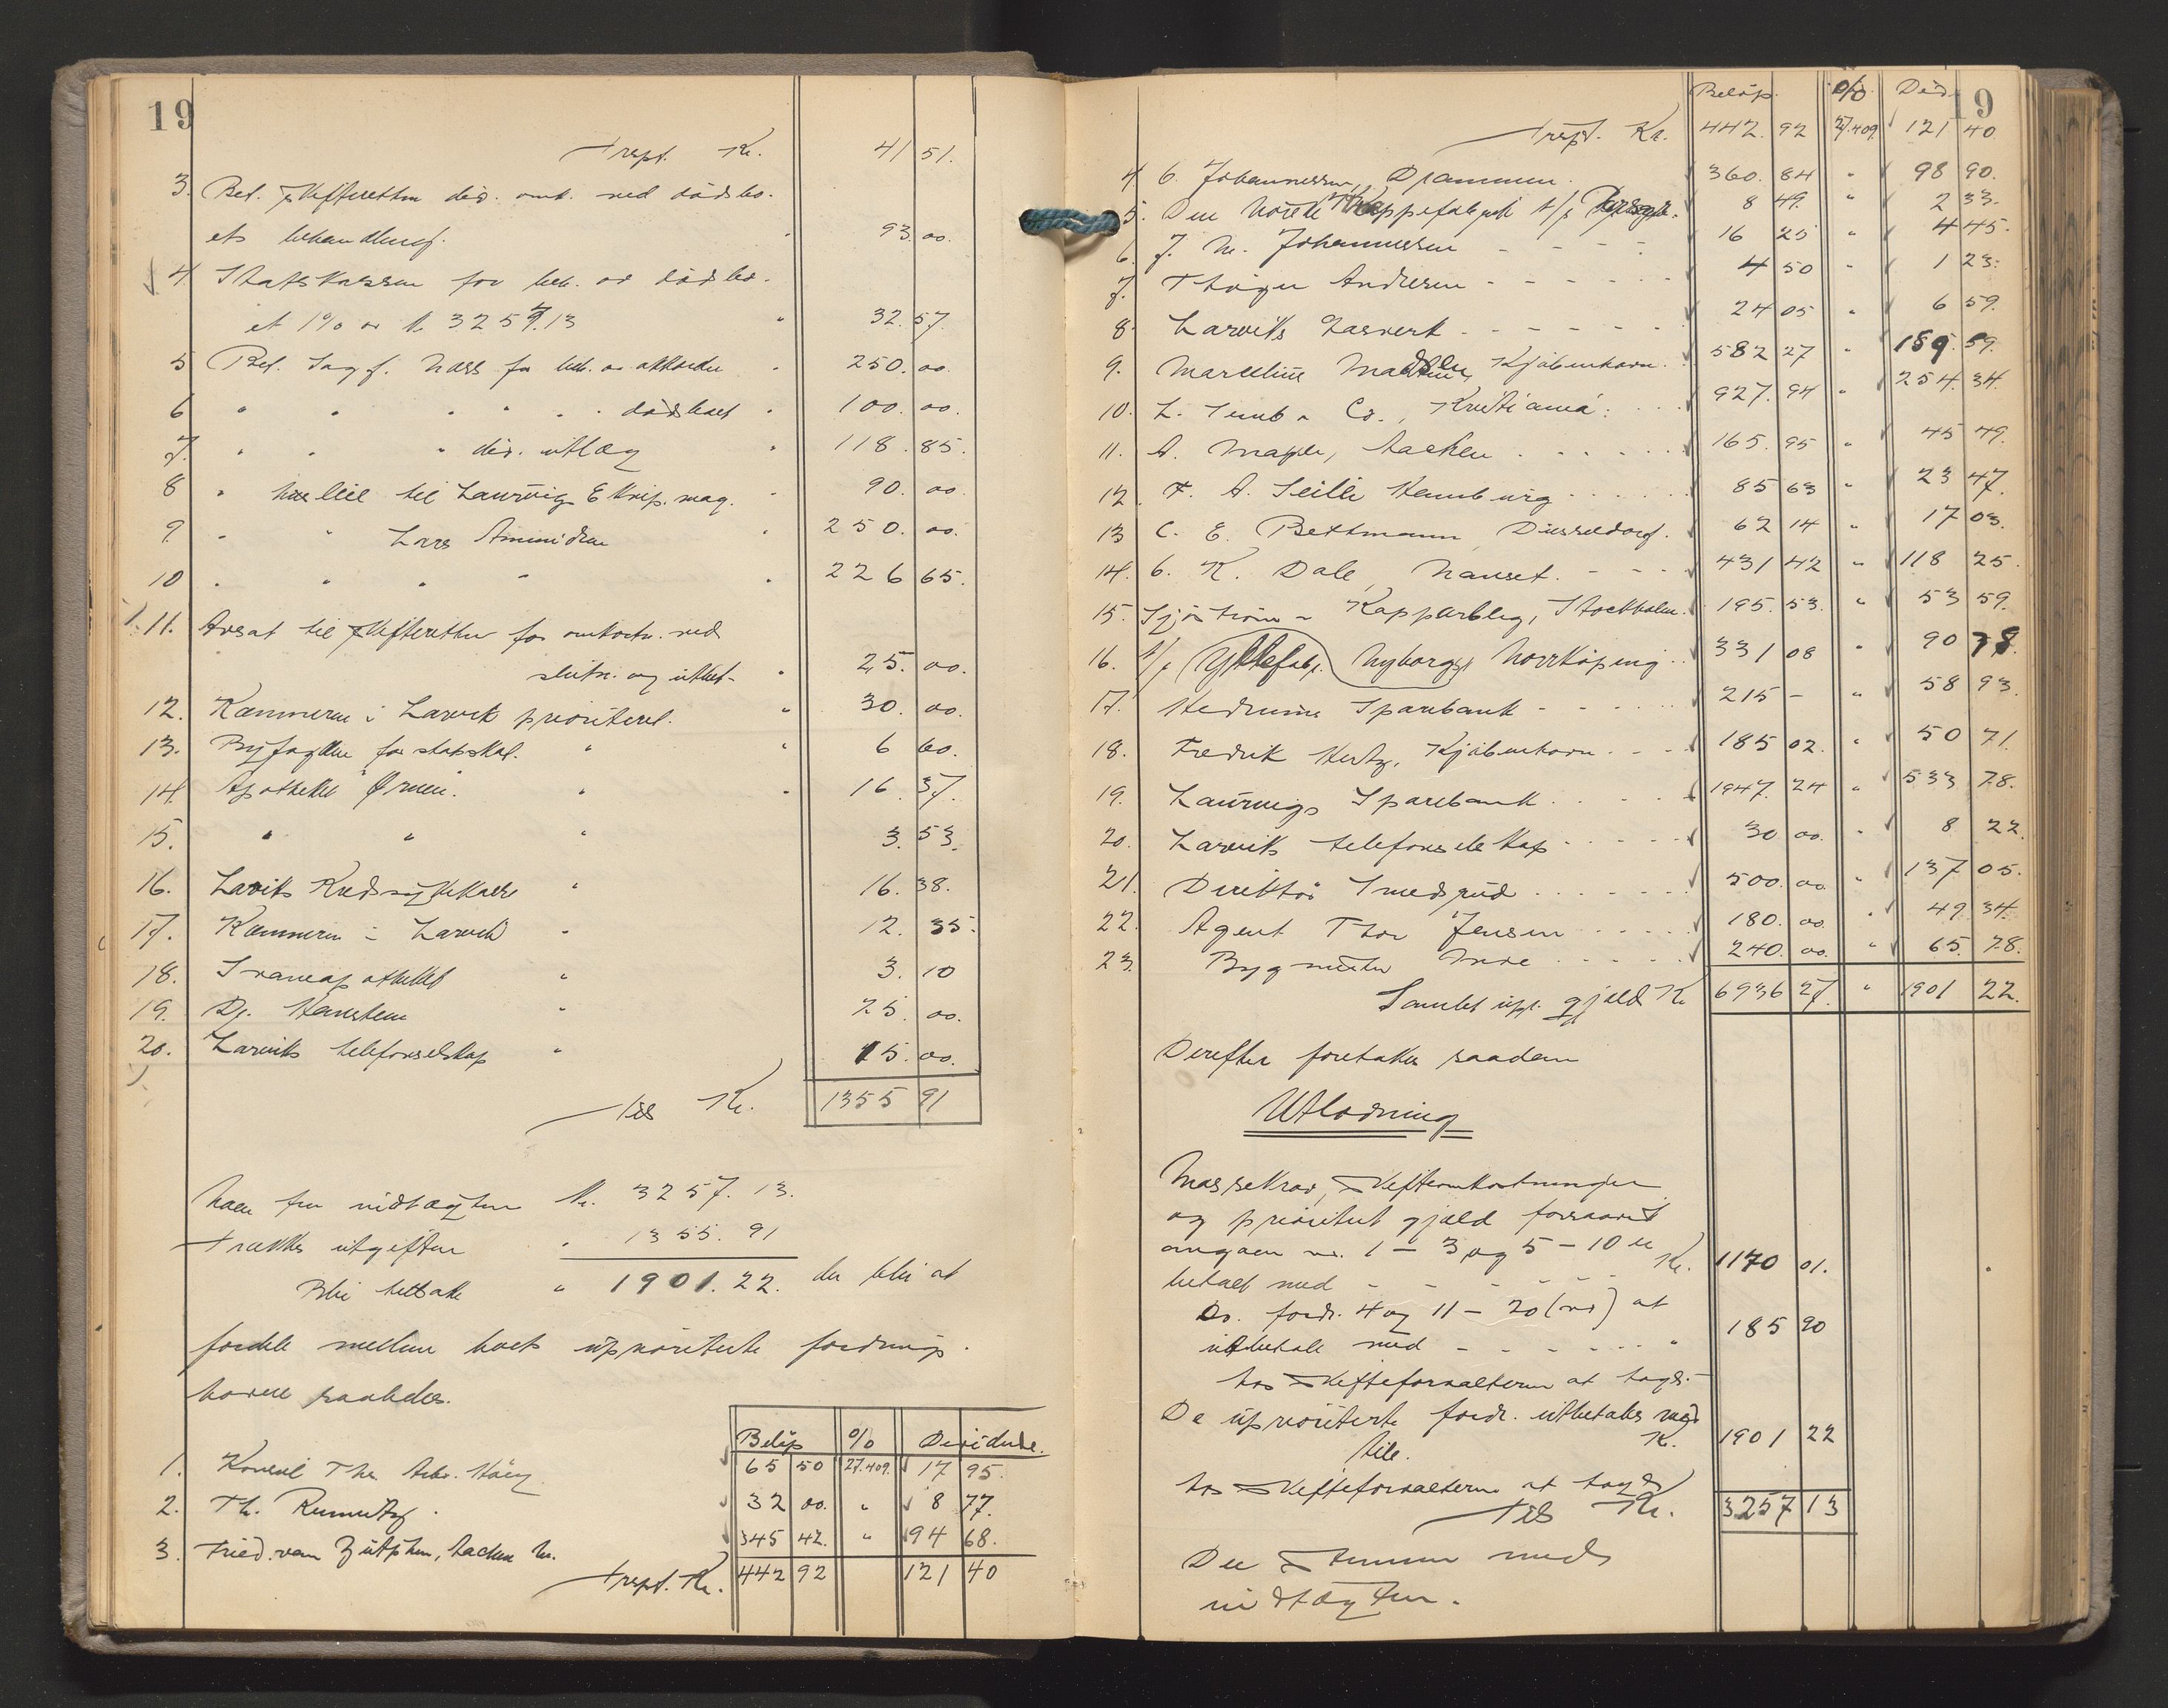 19
Trspt. Kr. 41 51.
3. Bet. skifteretten div. omk. ved dödsbo-
ets behandling. " 93. 00.
4. Statskassen for beh. av dödsbo-
et 1% av kr 3257.13 " 32. 57.
5 Bet. Sagf. Næss for beh. av akkorden " 250. 00.
6 " " " " " " dödsboet " 100. 00.
7. " " " div. utlæg " 118. 85.
8 " til Laurvigs Ekvip. mag. " 90. 00.
9 " " Lars Amundsen " 250. 00.
10 " " " " " 226 65.
11. Avsat til skifteretten for omkostn. ved
slutn. og utbet- " 25. 00.
12. Kæmneren i Larvik prioritert. " 30. 00.
13. Byfogden for " " 6 60.
14. Apotheket Ørnen. " " 16. 37.
15. " " " 3. 53.
16. Larvik Kredssykekasse " 16. 38.
17. Kæmneren i Larvik " 12. 35.
18. Svaneapotheket " 3. 10
19. Dr. " 25. 00.
20. Larviks telefonselskap " 15. 00.
Tils Kr. 1355 91
Naar fra indtægten Kr. 3257. 13.
Trækkes utgiften " 1355. 91
Blir tilbake " 1901. 22. der blir at
fordele mellem boets uprioriterte fordrings-
havere saaledes.
Belöp % Dividende.
1. Konsul Chr. 65 50 27.409. 17 95.
2. Th. 32 00. " 8 77.
3. Fried. van Zütphen, Aachen 345 42. " 94 68.
Trspt. Kr. 442 92 121 40
19
Belöp. % Div.
Trspt. Kr. 442. 92 27.409 121 40
4. C. Johannessen, Drammen. 360. 84 " 98 90.
5. Den Norske A/s 8 49. " 2 33.
6. J. M. Johannessen - - - - 16 25 " 4 45.
7. Thöger Andresen - - - - - - 4 50 " 1 23.
8. Larviks Gasverk - - - - - - 24 05 " 6 59.
9. Marcelius Madsen, Kjöbenhavn. 582 27 " 159. 59.
10. L. & Co., Kristiania. 927. 94 " 254. 34.
11. A. Aachen . . . . . . 165. 95 " 45 49.
12. F. A. Hamburg . . . . . . 85 63 " 23 47.
13 C. E. Bethmann, Düsseldorf. 62 14 " 17 03.
14. C. K. Dale, Nanset. - - - 431 42 " 118 25.
15. Sjöström & Stockholm. 195. 53. " 53 59.
16. A/s Yllefabr. Nyborgs, Norrköping . . 331 08 " 90 78.
17. Hedrums Sparebank - - - - - - 215 - " 58 93.
18. Fredrik Hertz, Kjöbenhavn . - - 185 02. " 50 71.
19. Laurvigs Sparebank . . . . 1947. 24 " 533 78.
20. Larviks telefonselskap - - - - - 30 00. " 8 22.
21. Direktör Smedsrud . . . . . . . 500. 00. " 137 05.
22. Agent Thor Jensen . . . . . 180. 00 " 49 34.
23. Bygmester . . . . . 240. 00. " 65. 78.
Samlet upr. gjæld Kr 6936 27. " 1901 22.
Derefter foretakes saadan
Utlodning
Massekrav, skifteomkostninger
og prioritert gjæld forsaavidt
angaar nr. 1 - 3 og 5 - 10 er
betalt med - - - - - - Kr. 1170 01.
Do. fordr. 4 og 11 - 20 (nr) at
utbetale med - - - - - - - " 185 90
hos skifteforvalteren at
De uprioriterte fordr. utbetales med
tils. Kr. 1901 22
hos skifteforvalteren at
Tils Kr. 3257 13
Der stemmer med
indtægten.